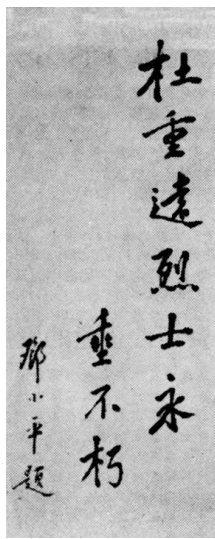 杜重遠烈士永
垂不朽
鄧小平題